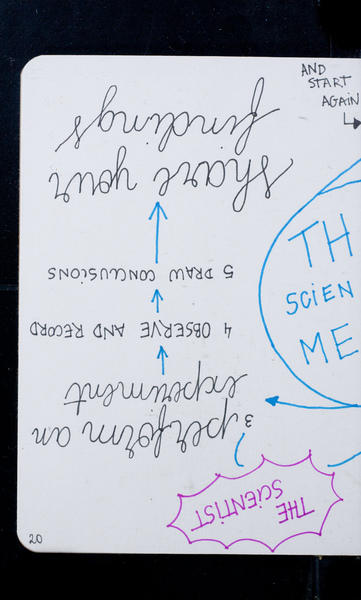 AND
START
AGAIN
TH
SCIEN
ME
THE
SCIENTIST
3 perform an
experiment
4 OBSERVE AND RECORD
5 DRAW CONCLUSIONS
share your
findings
20